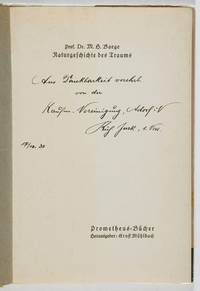 Prof. Dr. M. H. Baege
Naturgeschichte des Traums
Aus Dankbarkeit verehrt.
von der
Kaufm. Vereinigung, Adorf i. V
Prometheus-Bücher
Herausgeber: Ernst Mühlbach